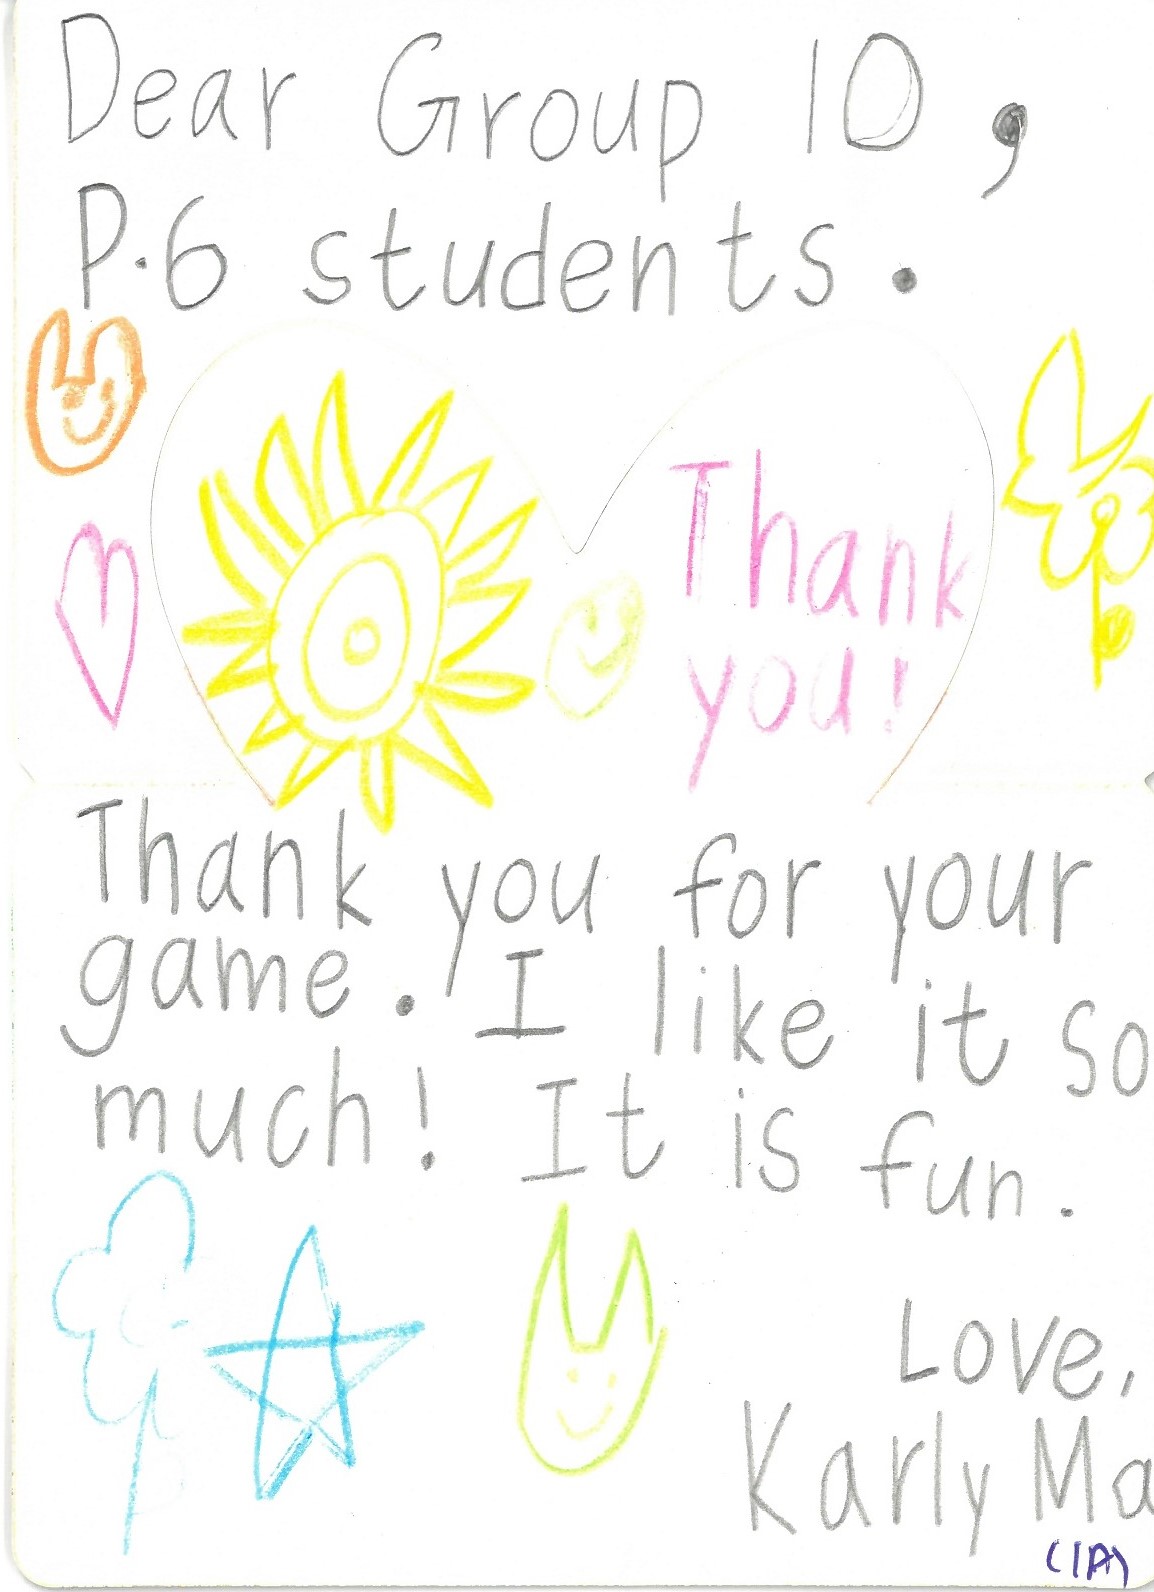 Dear Group 10,
P.6 students.
Thank
you!
Thank you for your
game. I like it so
much! It is fun.
Love,
Karly Ma
(1A)